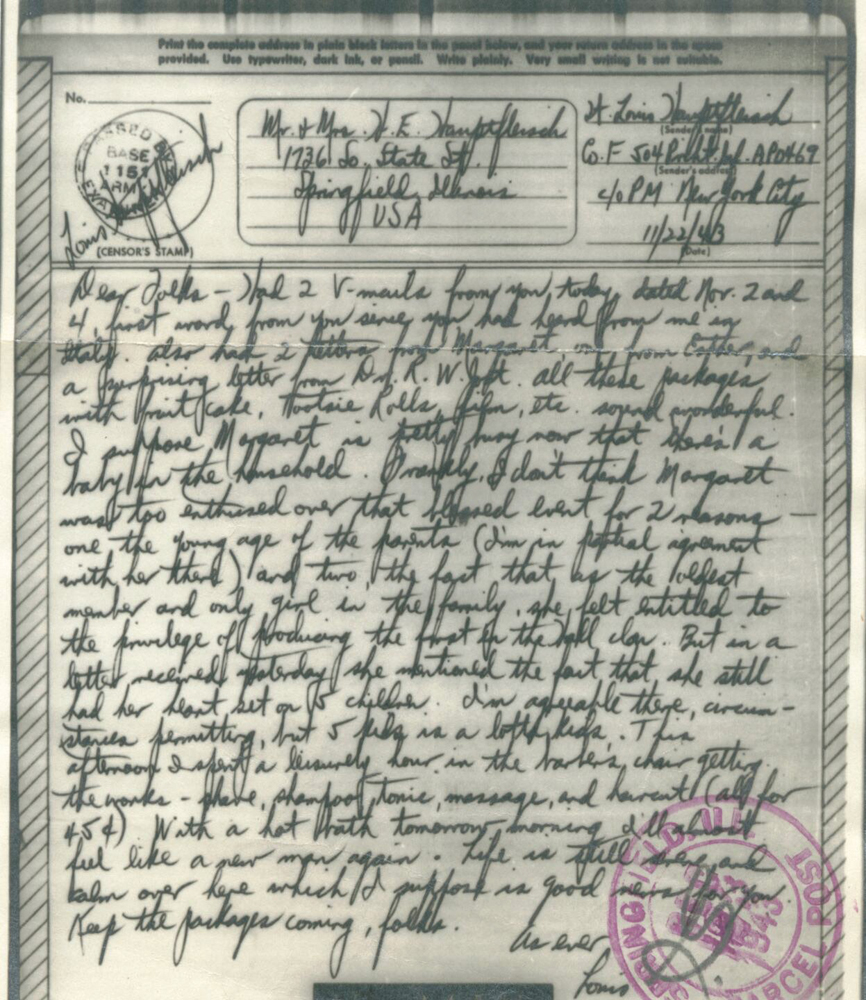 Print the complete address in plain block letters in the panel below, and your return address in the space
provided. Use typewriter, dark ink, or pencil. Write plainly. Very small writing is not suitable.
No.
PASSED BY
BASE
1151
ARMY
EXAMINER
Louis Hauptfleisch
(CENSOR'S STAMP)
Mr. & Mrs. H. E. Hauptfleisch
1736 So. State St.
Springfield, Illinois
USA
Lt. Louis Hauptfleisch
(Sender's name)
Co. F 504 Prcht. Inf. APO 469
(Sender's address)
c/o PM New York City
11/22/43
(Date)
Dear Folks – Had 2 V-mails from you today, dated Nov. 2 and
4, first word from you since you had heard from me in
Italy. Also had 2 letters from Margaret, one from Esther, and
a surprising letter from Dr. R. W. All these packages
with fruit cake, Tootsie Rolls, film, etc. sound wonderful.
I suppose Margaret is pretty busy now that there's a
baby in the household. Frankly, I don't think Margaret
was too enthused over that blessed event for 2 reasons –
one the young age of the parents (I'm in partial agreement
with her there) and two, the fact that, as the oldest
member and only girl in the family, she felt entitled to
the privilege of producing the first in the Hall clan. But in a
letter received yesterday she mentioned the fact that, she still
had her heart set on 5 children. I'm agreeable there, circum-
stances permitting, but 5 kids is a lotta kids. This
afternoon I spent a leisurely hour in the barber's chair getting
the works – shave, shampoo, tonic, massage, and haircut (all for
45¢). With a hot bath tomorrow morning I'll almost
feel like a new man again. Life is still serene and
calm over here which I suppose is good news for you.
Keep the packages coming, folks.
As ever
Louis
SPRINGFIELD, ILL.
1943
PARCEL POST